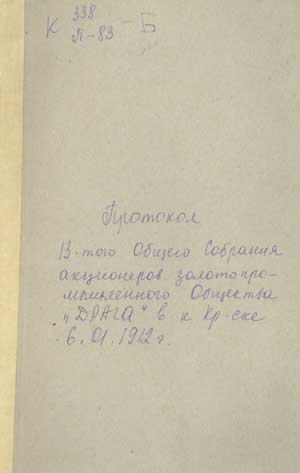 К 338 - Б
П-83
Протокол
13-того Общего Собрания
акционеров золотопро-
мышленного Общества
"ДРАГА" в к Кр-ске
6.01.1912 г.